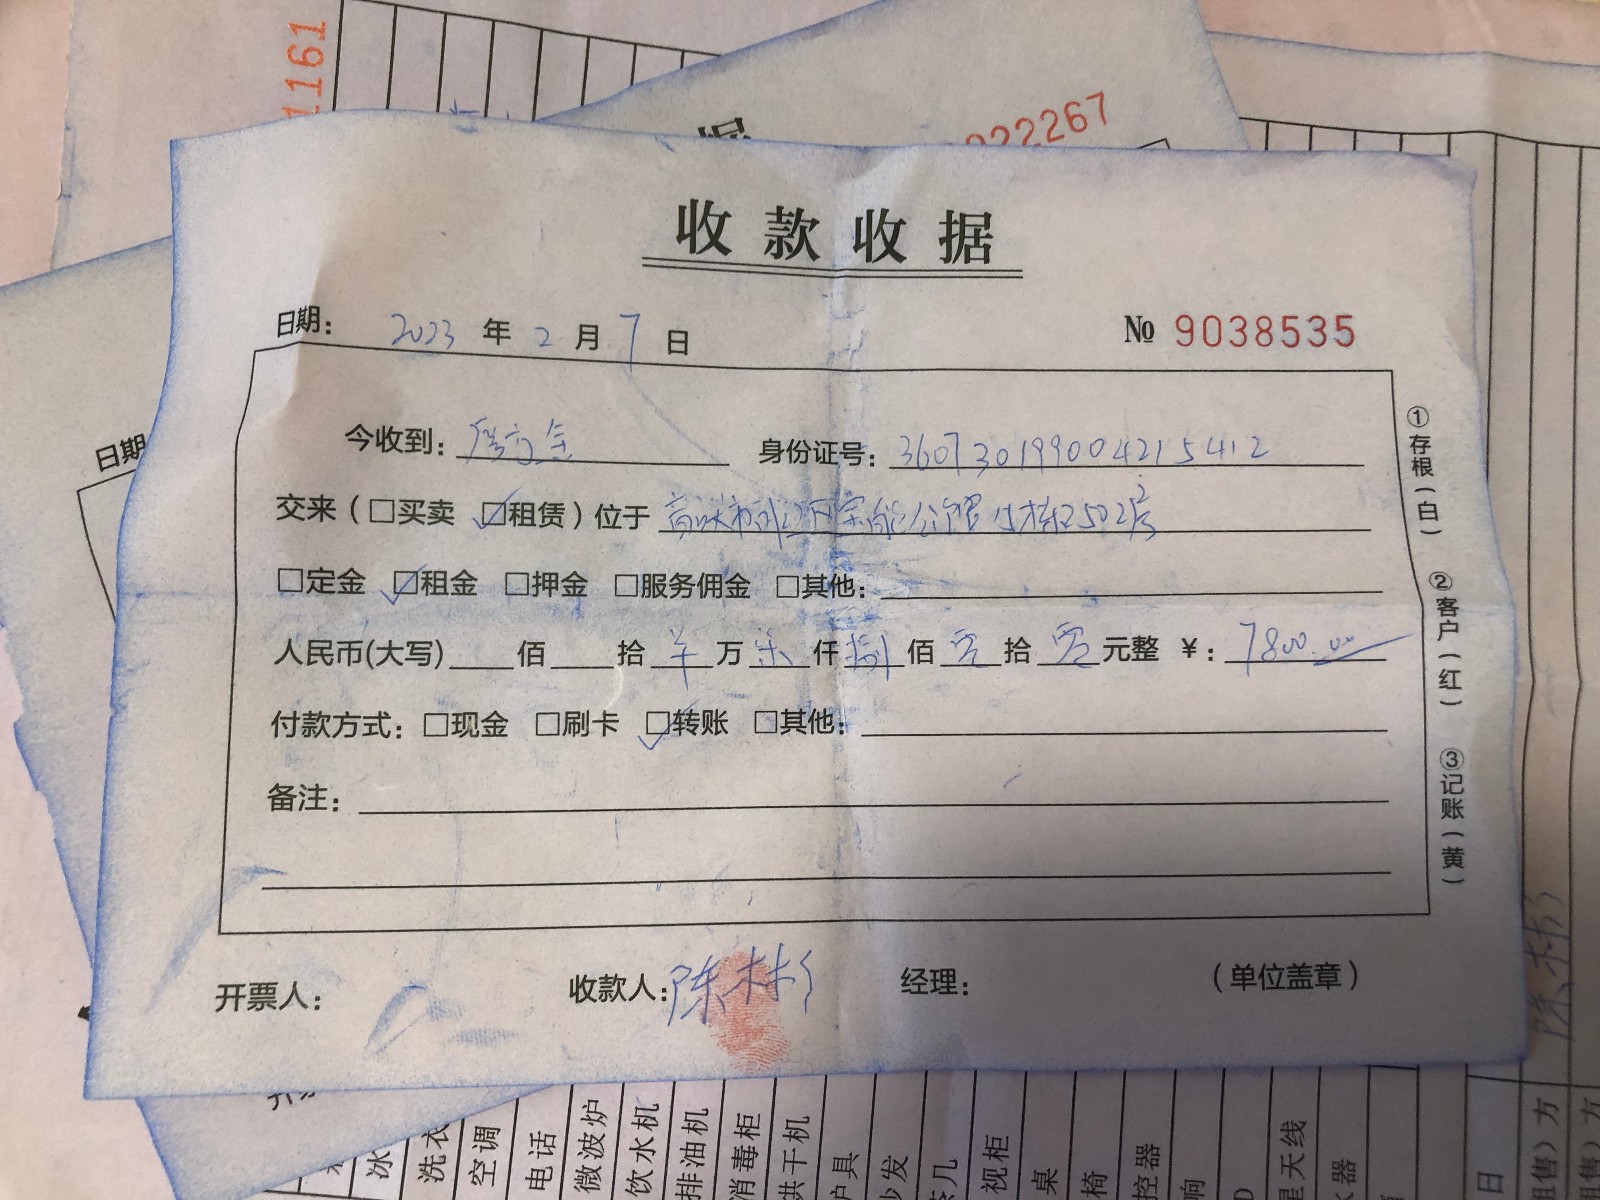 1161
022267
收款收据
日期： 2023 年 2 月 7 日 № 9038535
今收到： 身份证号： 360730199004215412
交来（□买卖 ☑租赁）位于 2502房
□定金 ☑租金 □押金 □服务佣金 □其他：
人民币(大写) 佰 拾 万 柒 仟 捌 佰 零 拾 零 元整 ￥： 7800.00
付款方式： □现金 □刷卡 ☑转账 □其他：
备注：
开票人： 收款人： 陈林彬 经理： （单位盖章）
①存根（白） ②客户（红） ③记账（黄）
日期
空调
电话
微波炉
饮水机
排油机
消毒柜
烘干机
视柜
桌
椅
控器
星天线
日